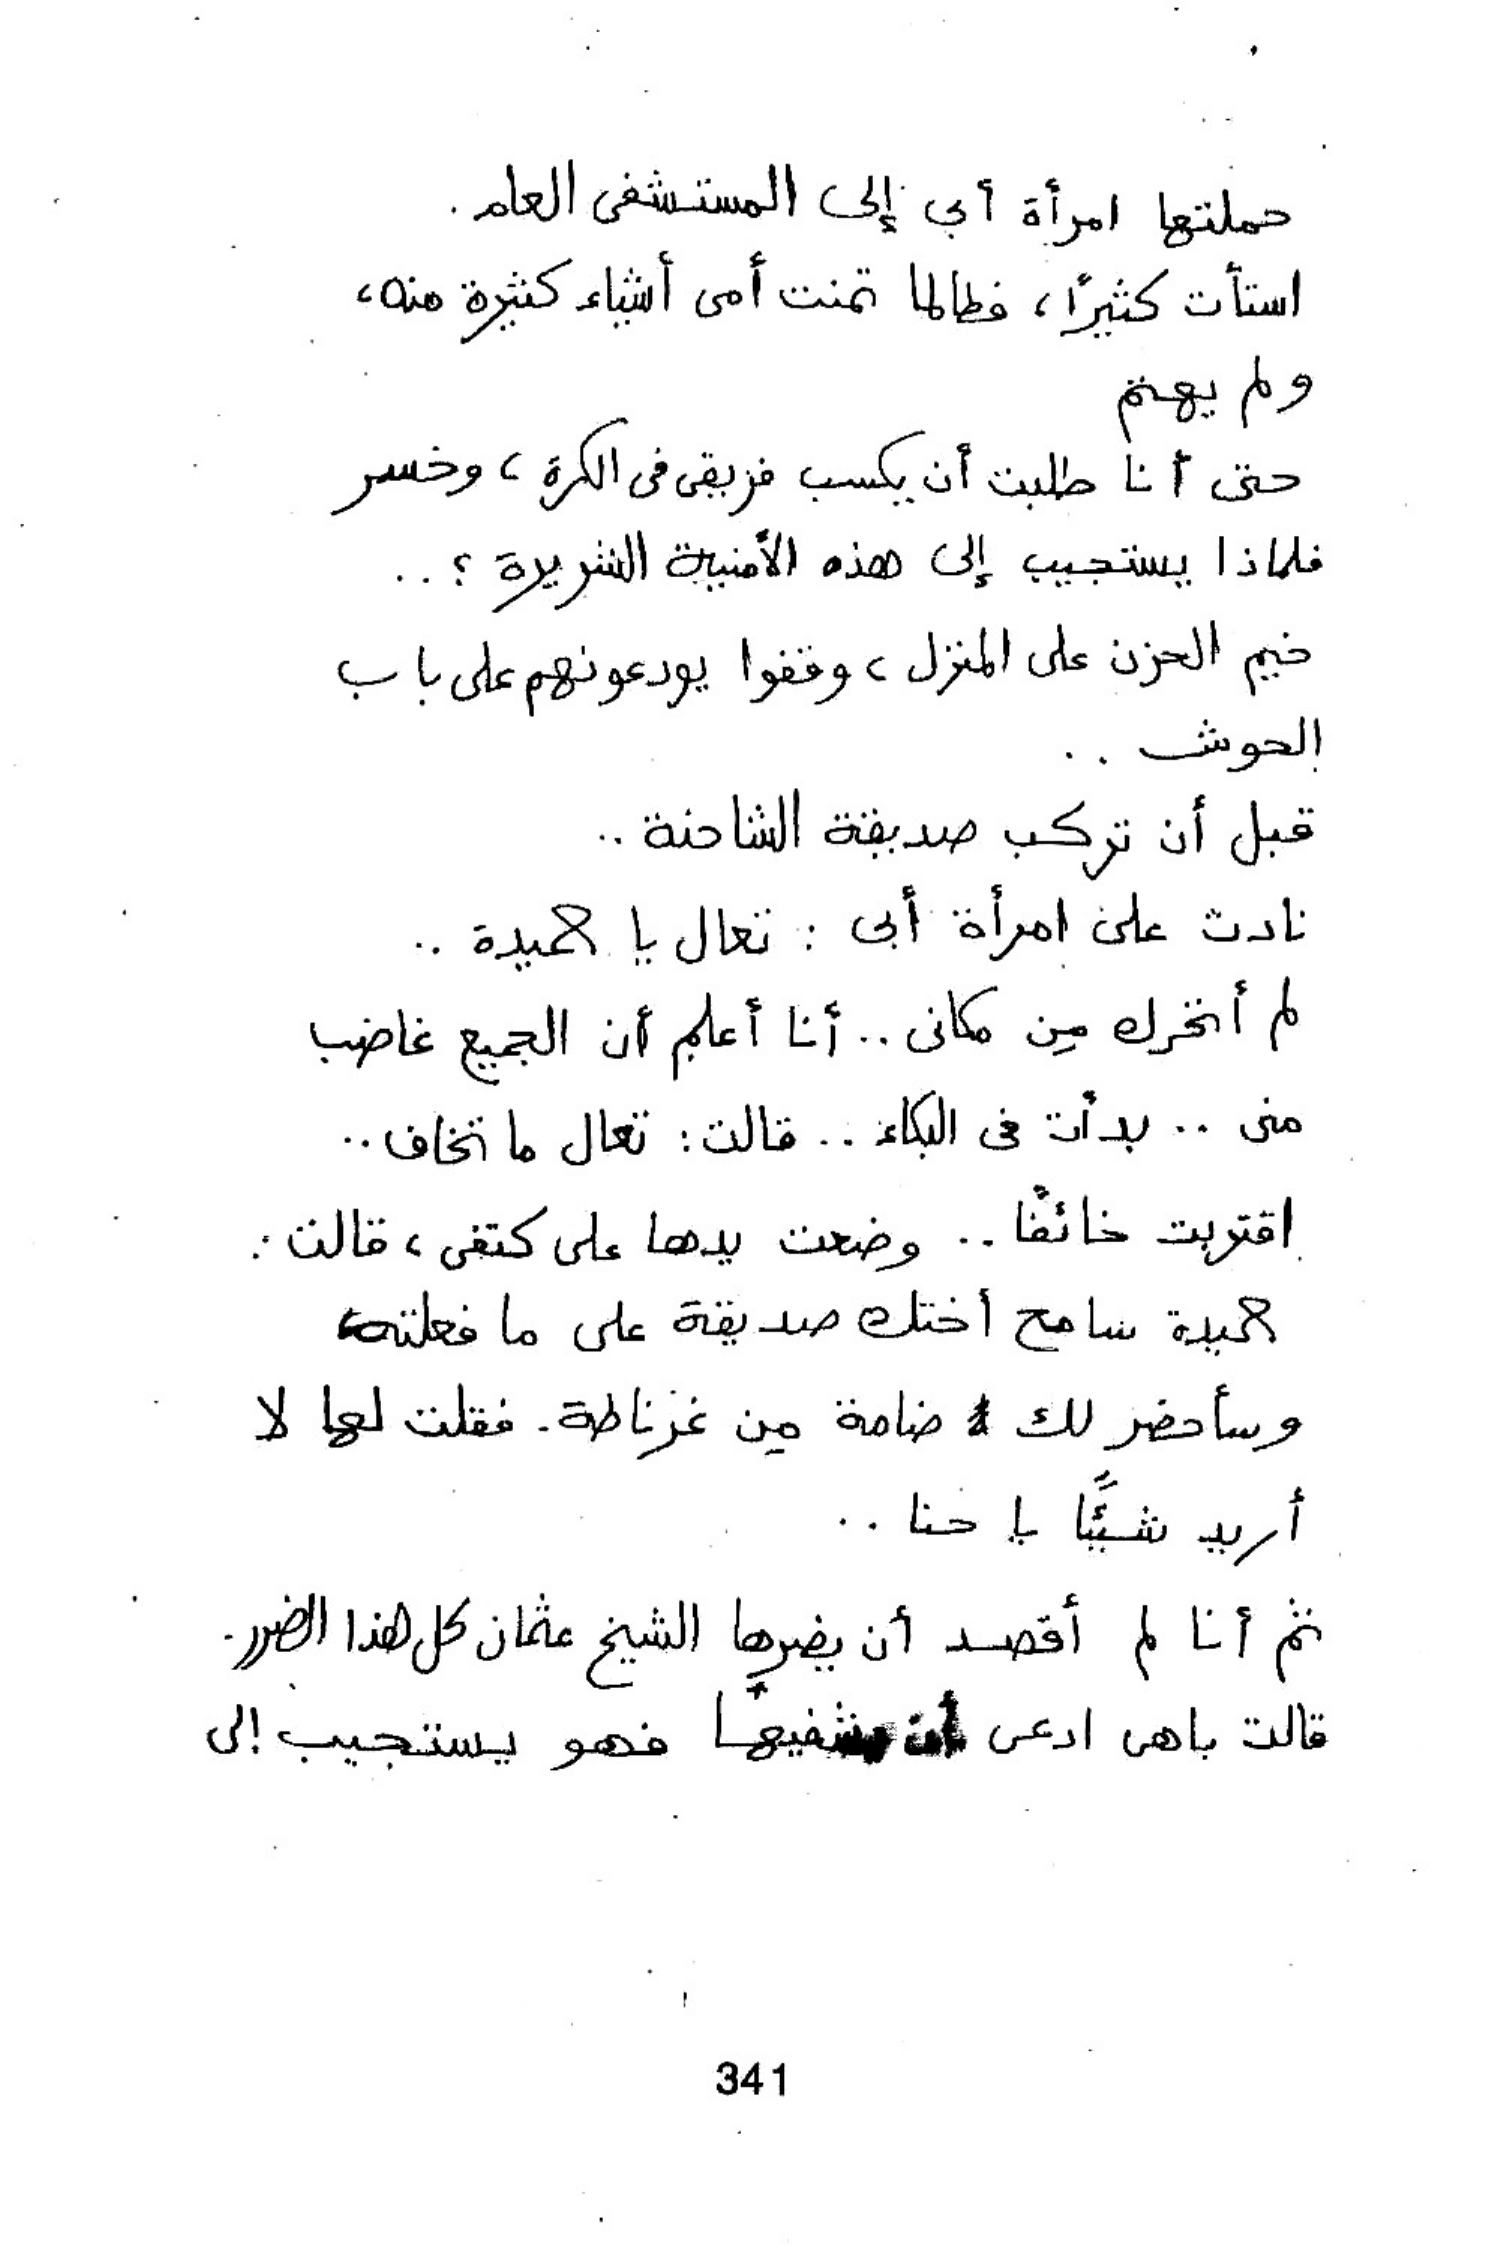 حملتها امرأة أبي إلى المستشفى العام.
استأت كثيرًا، فطالما تمنت أمى أشياء كثيرة منه،
ولم يهتم
حتى أنا طلبت أن يكسب فريقى فى الكرة، وخسر
فلماذا يستجيب إلى هذه الأمنية الشريرة؟..
خيم الحزن على المنزل، وقفوا يودعونهم على باب
الحوش ..
قبل أن تركب صديقة الشاحنة ..
نادت على امرأة أبى : تعال يا حميدة ..
لم أتحرك من مكانى .. أنا أعلم أن الجميع غاضب
منى .. بدأت فى البكاء .. قالت: تعال ما تخاف ..
اقتربت خائفًا .. وضعت يدها على كتفى، قالت:
حميدة سامح أختك صديقة على ما فعلته،
وسأحضر لك ضامة من غرناطة. فقلت لها لا
أريد شيئًا يا حنا ..
ثم أنا لم أقصد أن يضرها الشيخ عثمان كل هذا الضرر.
قالت باهى ادعى أن يشفيها فهو يستجيب إلى
341